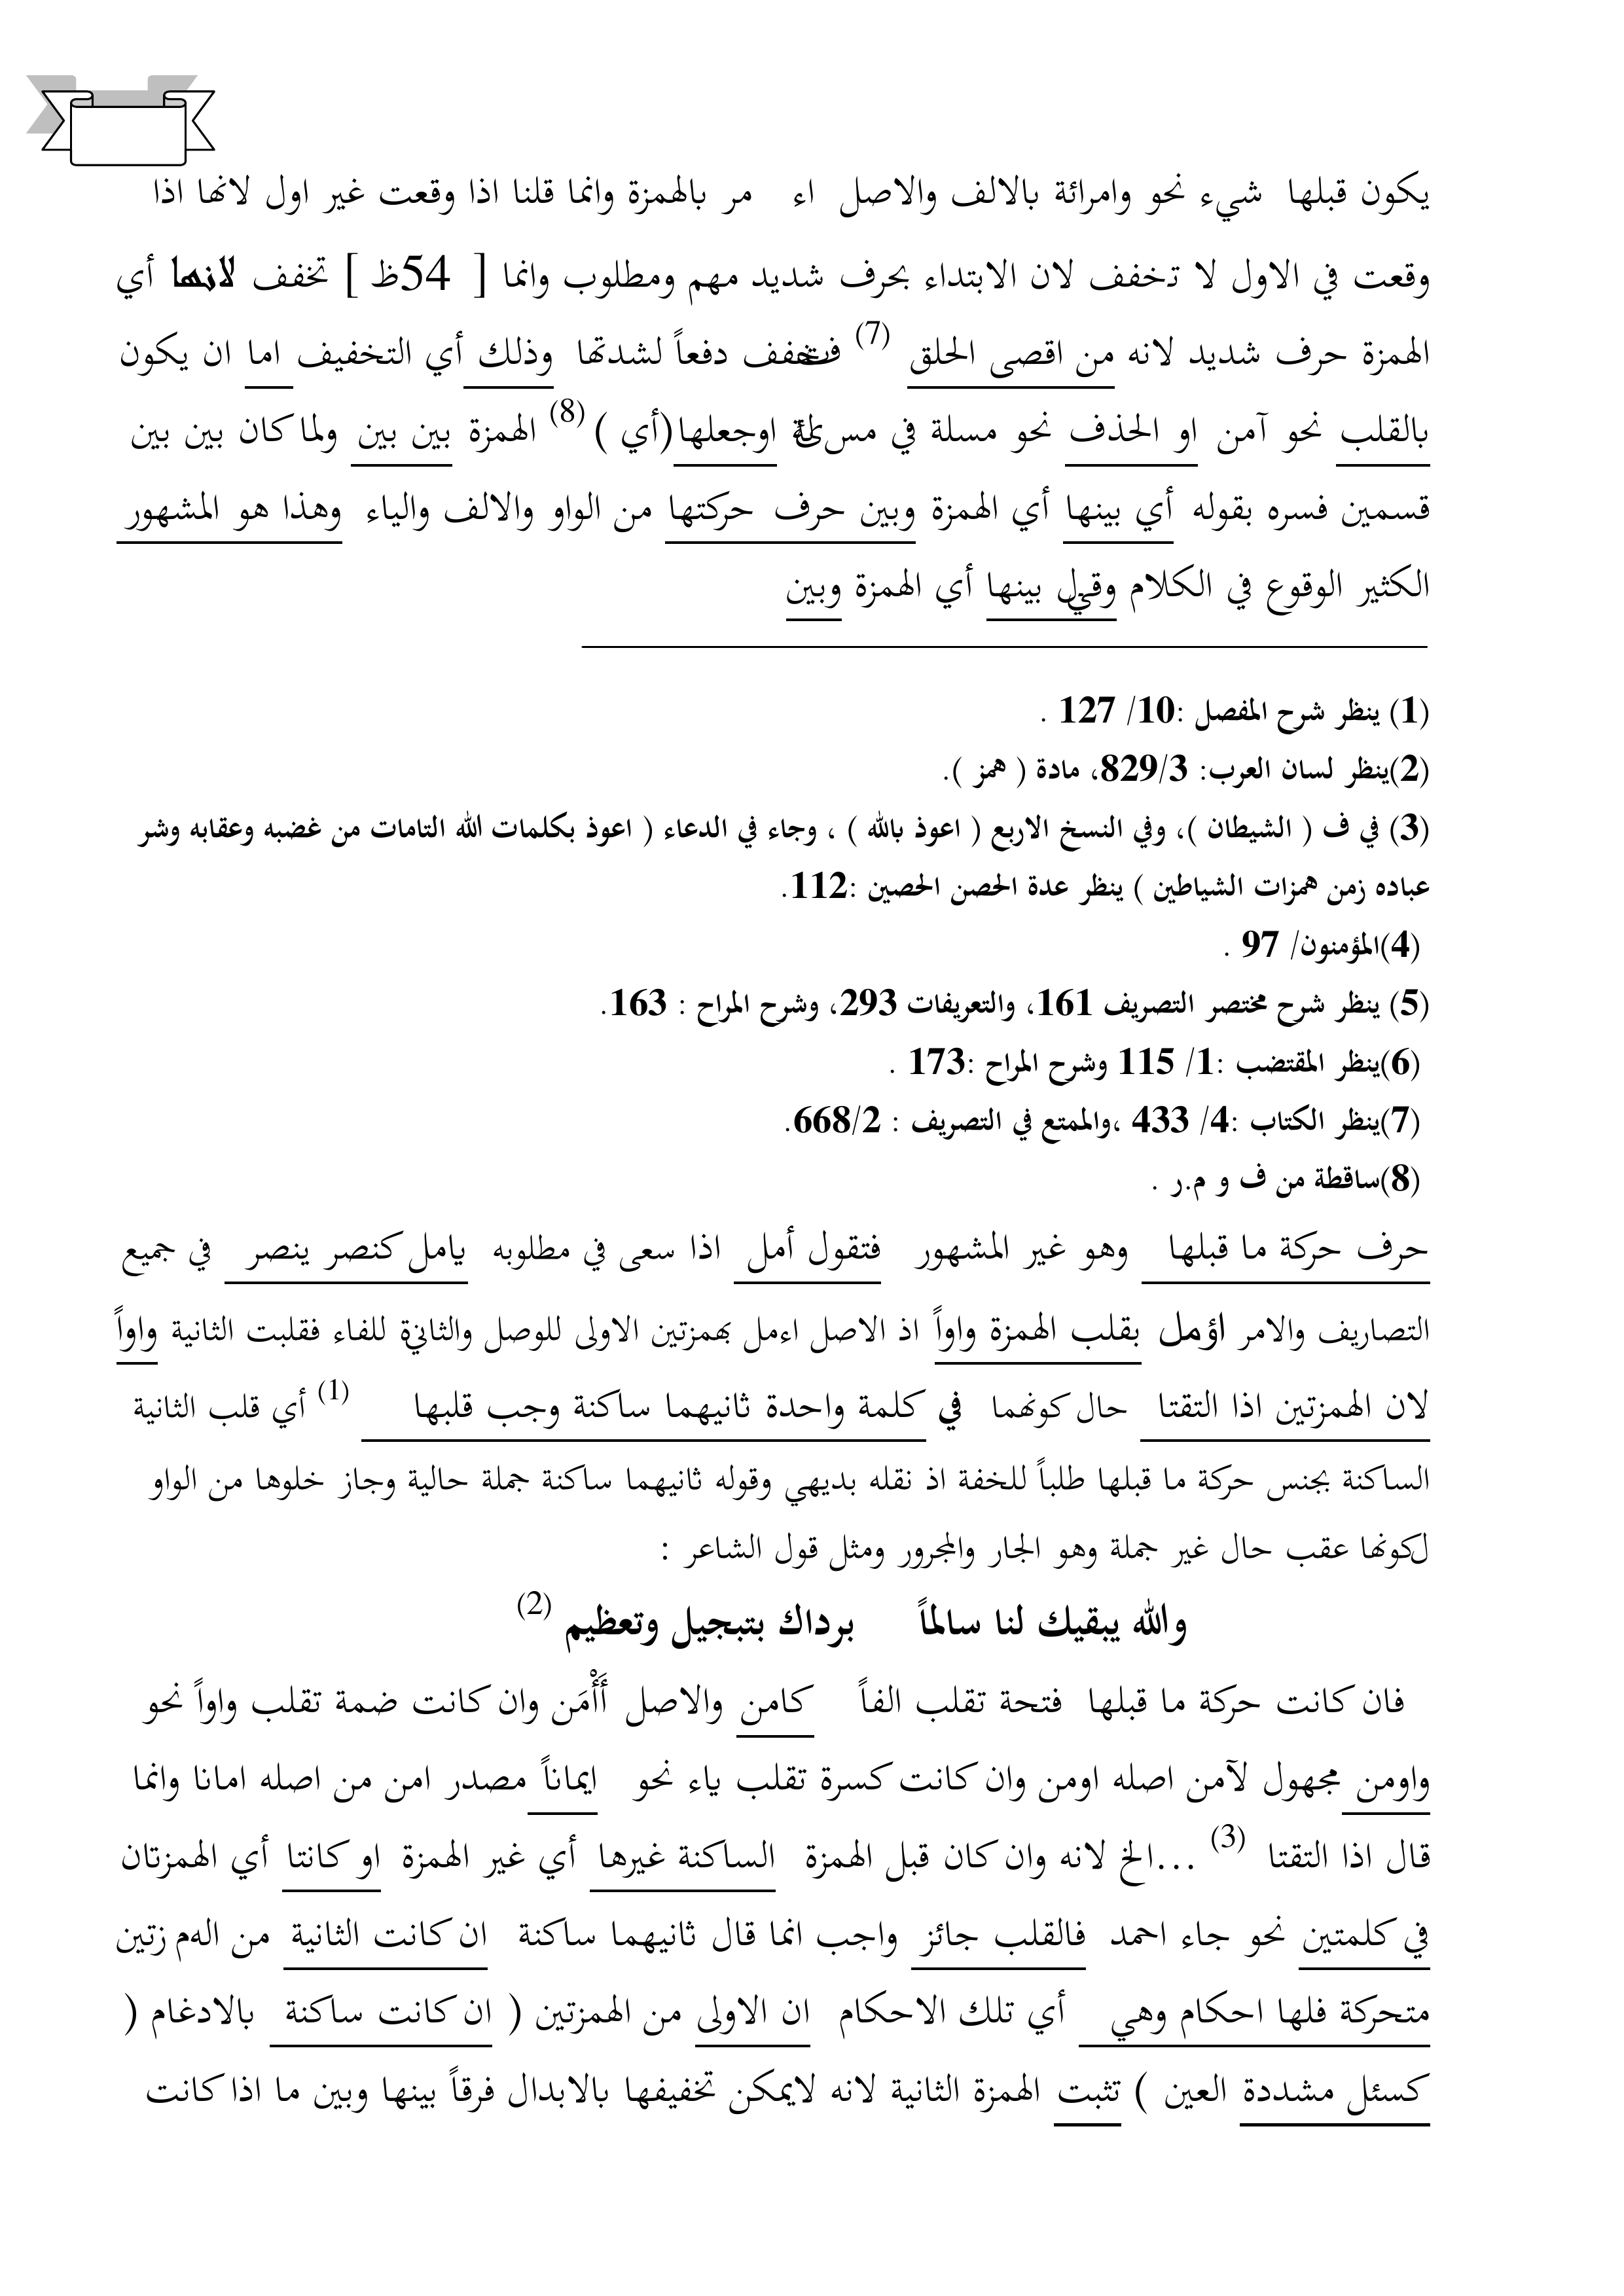 يكون قبلها شيء نحو وامرائة بالالف والاصل اء مر بالهمزة وانما قلنا اذا وقعت غير اول لانها اذا
وقعت في الاول لا تخفف لان الابتداء بحرف شديد مهم ومطلوب وانما [ 54ظ ] تخفف لانها أي
الهمزة حرف شديد لانه من اقصى الحلق (7) فتخفف دفعاً لشدتها وذلك أي التخفيف اما ان يكون
بالقلب نحو آمن او الحذف نحو مسلة في مسئلة اوجعلها(أي )(8) الهمزة بين بين ولما كان بين بين
قسمين فسره بقوله أي بينها أي الهمزة وبين حرف حركتها من الواو والالف والياء وهذا هو المشهور
الكثير الوقوع في الكلام وقيل بينها أي الهمزة وبين
(1) ينظر شرح المفصل :10/ 127 .
(2)ينظر لسان العرب: 829/3، مادة ( همز ).
(3) في ف ( الشيطان )، وفي النسخ الاربع ( اعوذ بالله ) ، وجاء في الدعاء ( اعوذ بكلمات الله التامات من غضبه وعقابه وشر
عباده زمن همزات الشياطين ) ينظر عدة الحصن الحصين :112.
(4)المؤمنون/ 97 .
(5) ينظر شرح مختصر التصريف 161، والتعريفات 293، وشرح المراح : 163.
(6)ينظر المقتضب :1/ 115 وشرح المراح :173 .
(7)ينظر الكتاب :4/ 433 ،والممتع في التصريف : 668/2.
(8)ساقطة من ف و م.ر .
حرف حركة ما قبلها وهو غير المشهور فتقول أمل اذا سعى في مطلوبه يامل كنصر ينصر في جميع
التصاريف والامر اؤمل بقلب الهمزة واواً اذ الاصل اءمل بهمزتين الاولى للوصل والثانية للفاء فقلبت الثانية واواً
لان الهمزتين اذا التقتا حال كونهما في كلمة واحدة ثانيهما ساكنة وجب قلبها (1) أي قلب الثانية
الساكنة بجنس حركة ما قبلها طلباً للخفة اذ نقله بديهي وقوله ثانيهما ساكنة جملة حالية وجاز خلوها من الواو
لكونها عقب حال غير جملة وهو الجار والمجرور ومثل قول الشاعر :
والله يبقيك لنا سالماً برداك بتبجيل وتعظيم (2)
فان كانت حركة ما قبلها فتحة تقلب الفاً كامن والاصل أَأْمَن وان كانت ضمة تقلب واواً نحو
واومن مجهول لآمن اصله اومن وان كانت كسرة تقلب ياء نحو ايماناً مصدر امن من اصله امانا وانما
قال اذا التقتا (3) ...الخ لانه وان كان قبل الهمزة الساكنة غيرها أي غير الهمزة او كانتا أي الهمزتان
في كلمتين نحو جاء احمد فالقلب جائز واجب انما قال ثانيهما ساكنة ان كانت الثانية من الهمزتين
متحركة فلها احكام وهي أي تلك الاحكام ان الاولى من الهمزتين ( ان كانت ساكنة بالادغام (
كسئل مشددة العين ) تثبت الهمزة الثانية لانه لايمكن تخفيفها بالابدال فرقاً بينها وبين ما اذا كانت